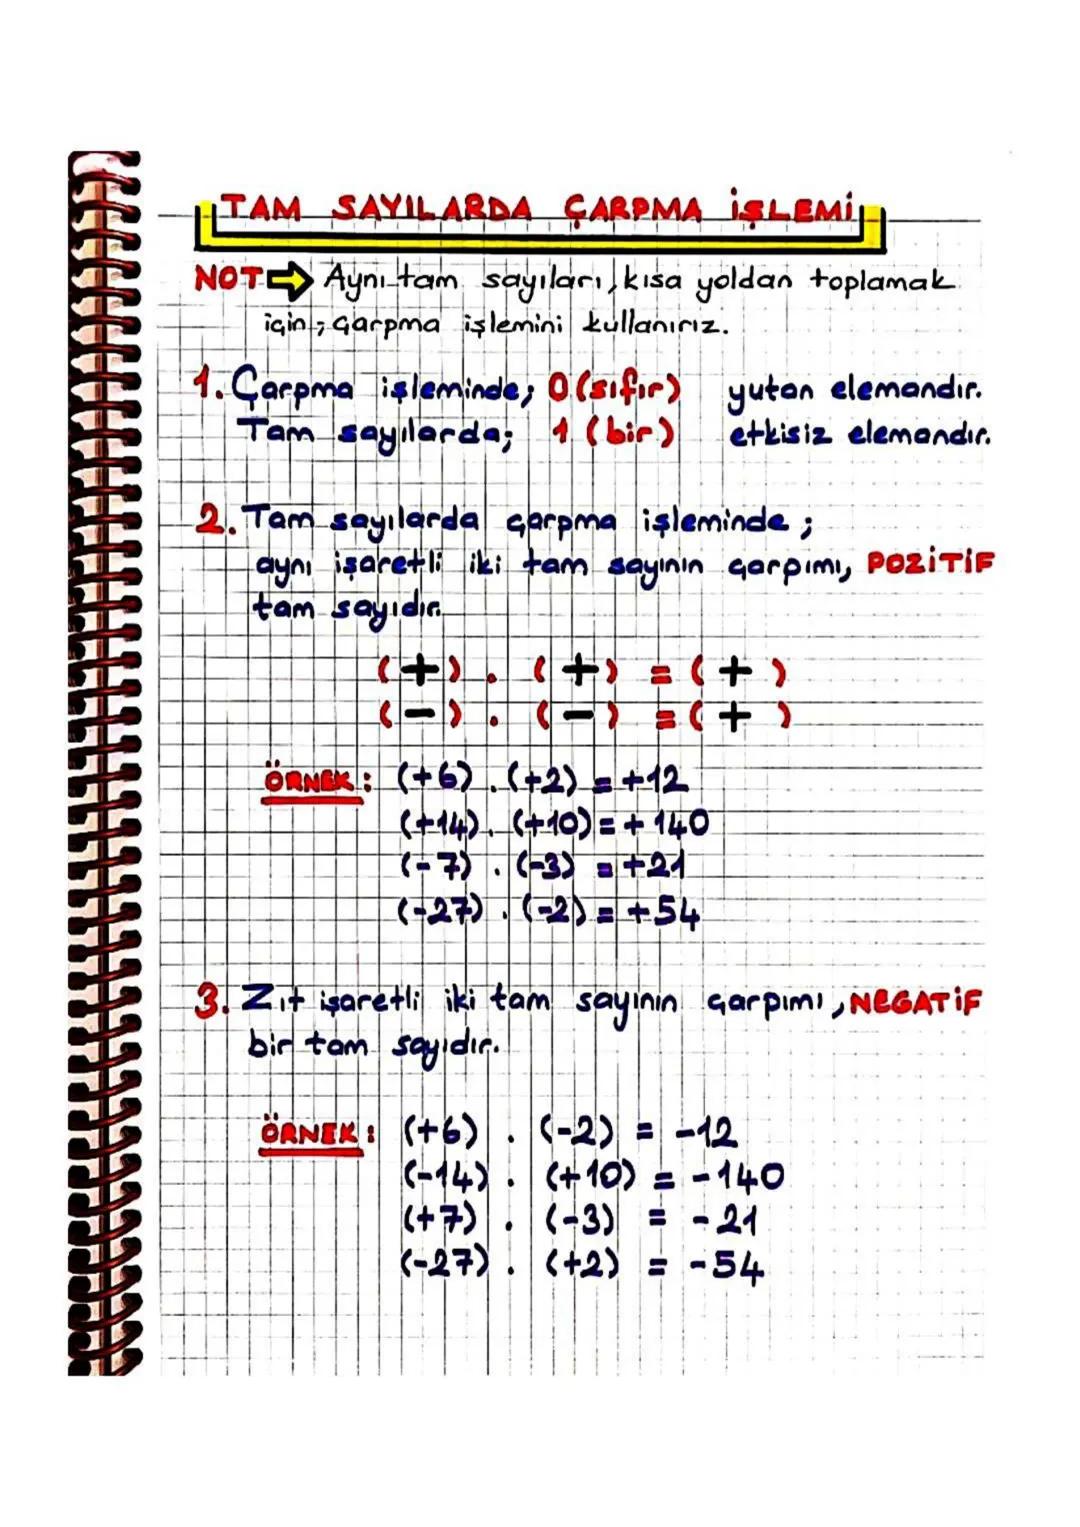 TAM SAYILARDA ÇARPMA İŞLEMİ
NOT⇨ Aynı tam sayıları, kısa yoldan toplamak
için; çarpma işlemini kullanırız.
1. Çarpma işleminde; 0 (sıfır) yutan elemandır.
Tam sayılarda; 1 (bir) etkisiz elemandır.
2. Tam sayılarda çarpma işleminde;
aynı işaretli iki tam sayının çarpımı, POZİTİF
tam sayıdır.
(+) . (+) = (+)
(-) . (-) = (+)
ÖRNEK: (+6) . (+2) = +12
(+14) . (+10) = +140
(-7) . (-3) = +21
(-27) . (-2) = +54
3. Zıt işaretli iki tam sayının çarpımı, NEGATİF
bir tam sayıdır.
ÖRNEK: (+6) . (-2) = -12
(-14) . (+10) = -140
(+7) . (-3) = -21
(-27) . (+2) = -54